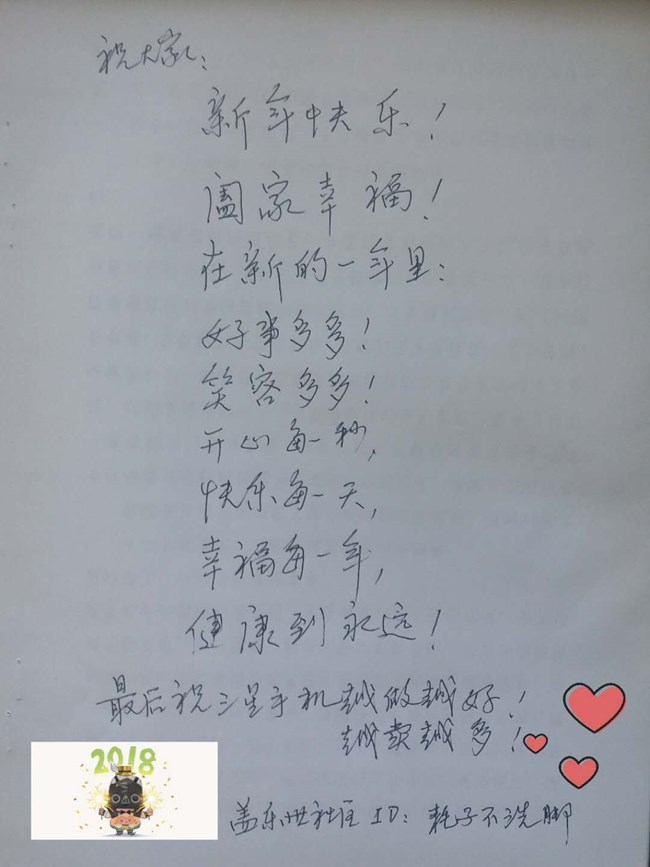 祝大家：
新年快乐！
阖家幸福！
在新的一年里：
好事多多！
笑容多多！
开心每一秒，
快乐每一天，
幸福每一年，
健康到永远！
最后祝三星手机越做越好！
越卖越多！
2018
盖乐世社区 ID：耗子不洗脚